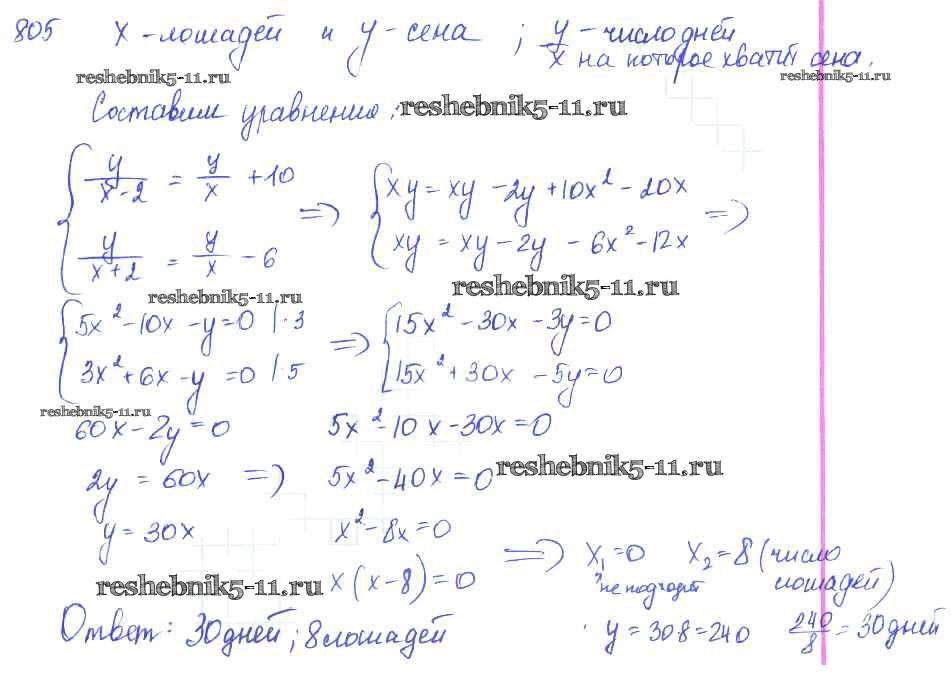 805 х - лошадей и у - сена ; y/x - число дней
на которое хватит сена.
reshebnik5-11.ru reshebnik5-11.ru
Составим уравнения: reshebnik5-11.ru
{ y/(x-2) = y/x + 10 => { xy = xy - 2y + 10x² - 20x =>
{ y/(x+2) = y/x - 6 { xy = xy - 2y - 6x² - 12x
reshebnik5-11.ru reshebnik5-11.ru
{ 5x² - 10x - y = 0 | · 3 => { 15x² - 30x - 3y = 0
{ 3x² + 6x - y = 0 | · 5 { 15x² + 30x - 5y = 0
reshebnik5-11.ru
60x - 2y = 0 5x² - 10x - 30x = 0
2y = 60x => 5x² - 40x = 0 reshebnik5-11.ru
y = 30x x² - 8x = 0
reshebnik5-11.ru x(x-8) = 0 => x₁ = 0 x₂ = 8 (число
не подходит лошадей)
Ответ: 30 дней; 8 лошадей y = 30 8 = 240 240/8 = 30 дней